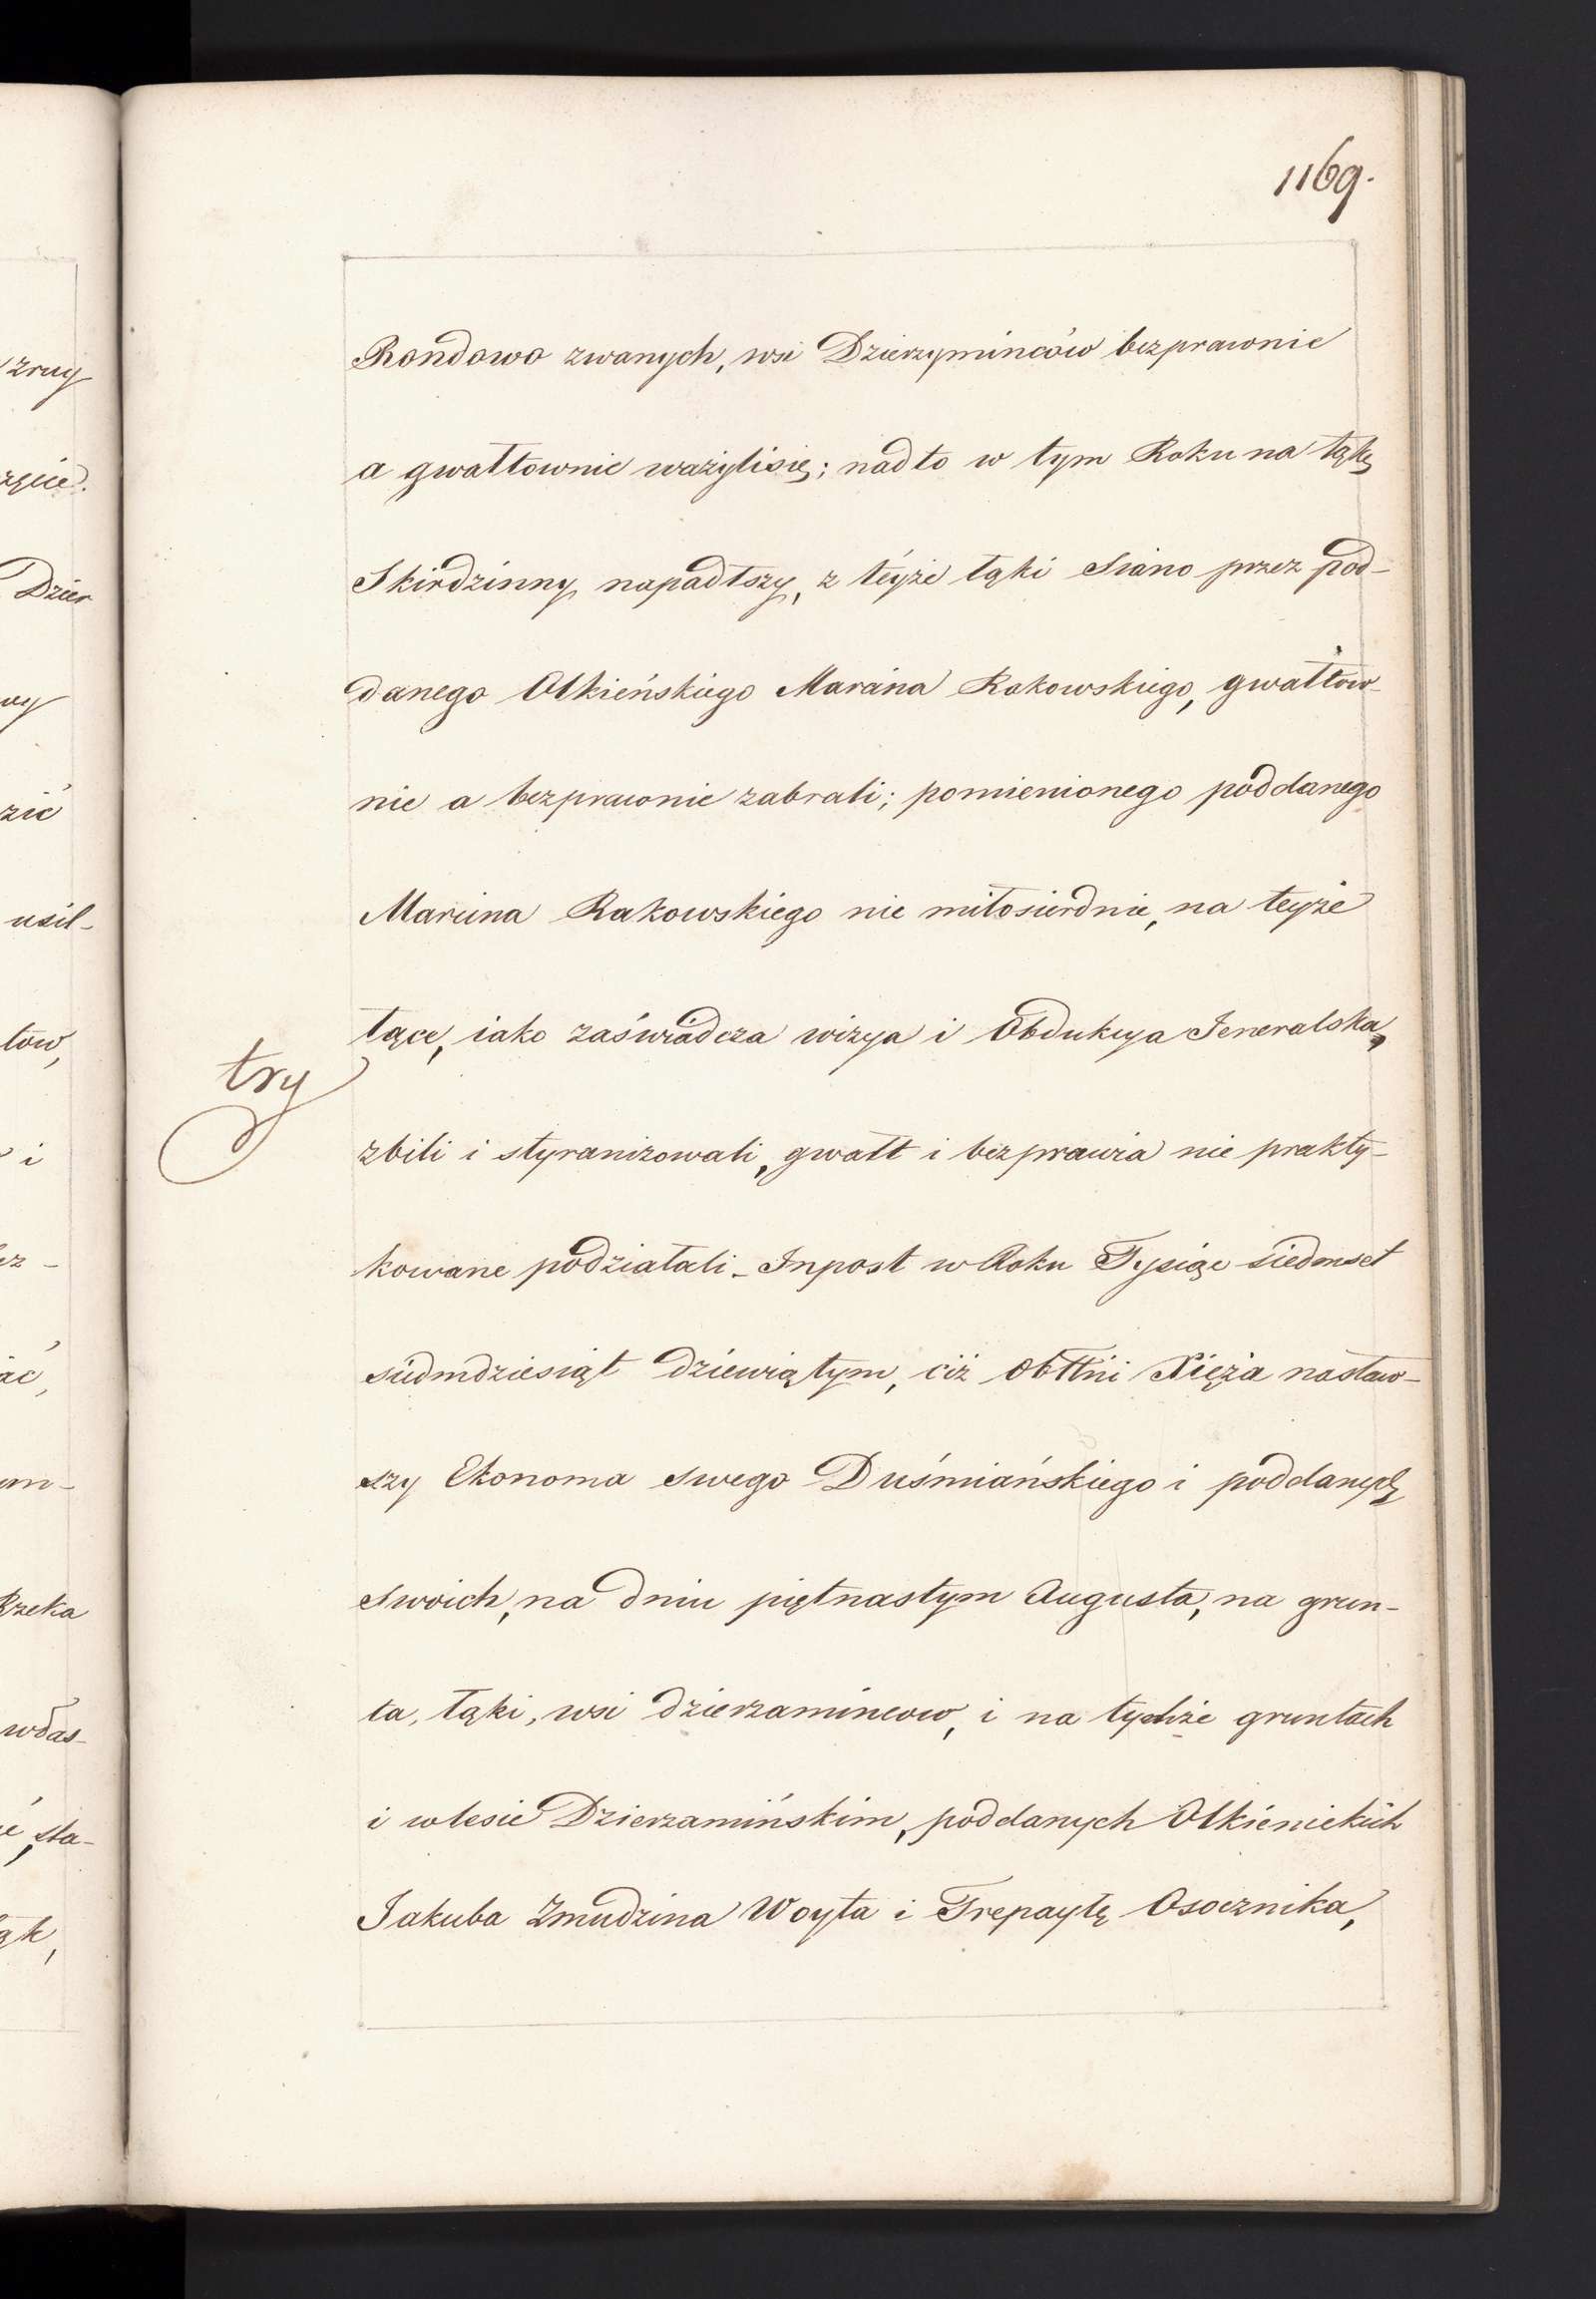 1169.
Rondowo zwanych, wsi Dzierzyminców bezprawnie
a gwałtownie ważylisię; nad to w tym Roku na łąkę
Skirdzinny napadłszy, z téyże łąki Siano przez pod-
danego Olkieńskiego Marcina Rakowskiego, gwałtow-
nie a bezprawnie zabrali; pomienionego poddanego
Marcina Rakowskiego nie miłosierdnie, na teyże
łące, iako zaświadcza wizya i Obdukcya Jeneralska,
try
zbili i styranizowali, gwałt i bezprawia nie prakty-
kowane podziałali - Inpost w Roku Tysiąc siedmset
siedmdziesiąt dziewiątym, ciż Obttni Xięża nasław-
szy Ekonoma swego Duśmiańskiego i poddanych
swoich, na dniu piętnastym Augusta, na grun-
ta, łąki, wsi dzierzamincow, i na tychże gruntach
i w lesie Dzierzamińskim, poddanych Olkienickich
Jakuba Zmudzina Woyta i Trepaytę Osocznika,
zruy
Dzier
zić
usil-
tow,
i
ez -
ać,
Rzeka
włas-
sta-